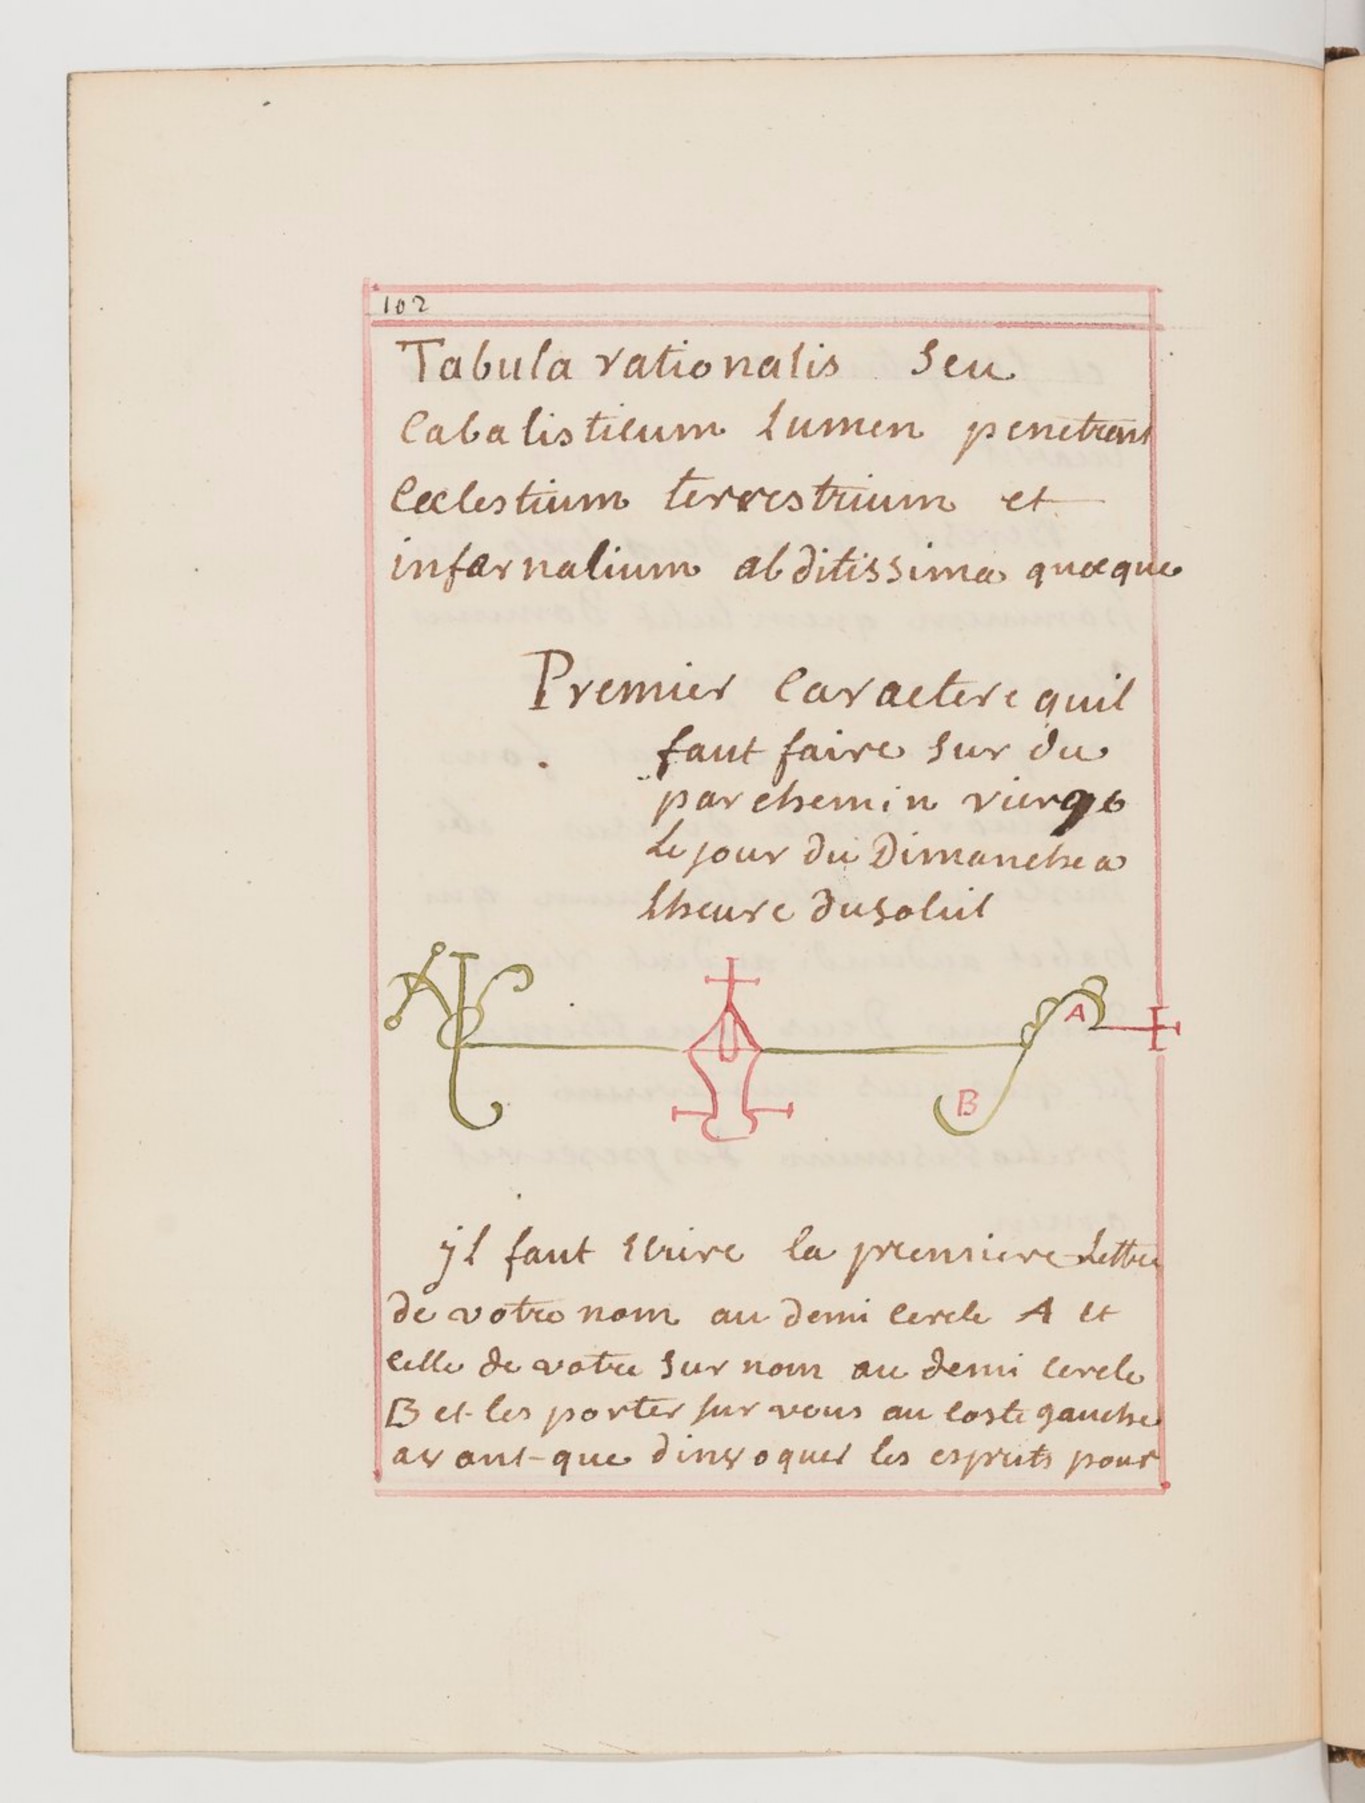 102
Tabula rationalis Seu
Cabalisticum lumen penetrans
Cœlestium terrestrium et
infernalium abditissima quæque
Premier Caractere quil
faut faire sur du
parchemin vierge
Le jour du Dimanche a
Lheure du soleil
A
B
yl faut Ecrire la premiere Lettre
de votre nom au demi cercle A et
celle de votre Sur nom au demi cercle
B et les porter sur vous au coste gauche
avant-que dinvoquer les esprits pour